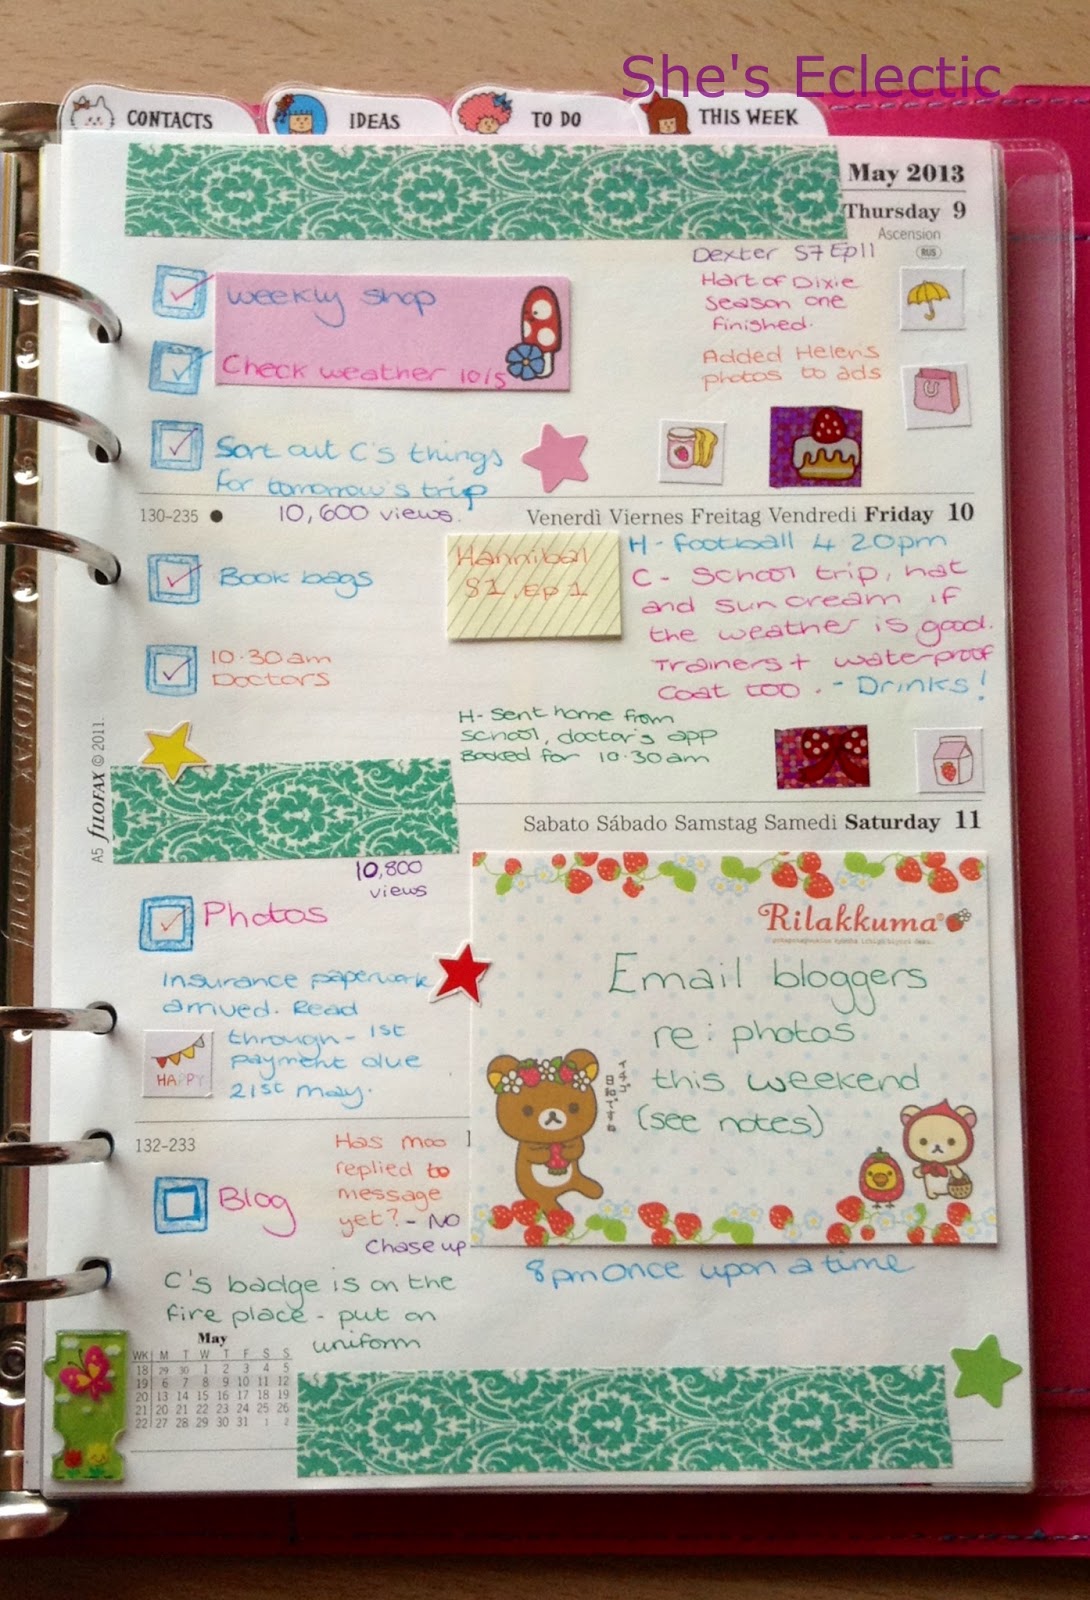 She's Eclectic
CONTACTS
IDEAS
TO DO
THIS WEEK
May 2013
Thursday 9
Ascension
RUS
Dexter S7 Ep11
Hart of Dixie
season one
finished.
Added Helen's
photos to ads
weekly shop
Check weather 10/5
Sort out C's things
for tomorrow's trip
130-235
10,600 views.
Venerdì Viernes Freitag Vendredi Friday 10
Book bags
10.30am
Doctors
Hannibal
S1, Ep 1
H - football 4.20pm
C - School trip, hat
and sun cream if
the weather is good.
Trainers + waterproof
coat too. - Drinks!
H - sent home from
school, doctor's app
Booked for 10.30am
A5 fILOFAX © 2011.
Sabato Sábado Samstag Samedi Saturday 11
10,800
views
Photos
Insurance paperwork
arrived. Read
through - 1st
payment due
21st may.
HAPPY
Rilakkuma
Email bloggers
re: photos
this weekend
(see notes)
イチゴ
日和ですね
132-233
Has moo
replied to
message
yet? - No
Chase up
Blog
8pm Once upon a time
C's badge is on the
fire place - put on
uniform
May
WK M T W T F S S
18 29 30 1 2 3 4 5
19 6 7 8 9 10 11 12
20 13 14 15 16 17 18 19
21 20 21 22 23 24 25 26
22 27 28 29 30 31 1 2
FILOFAX